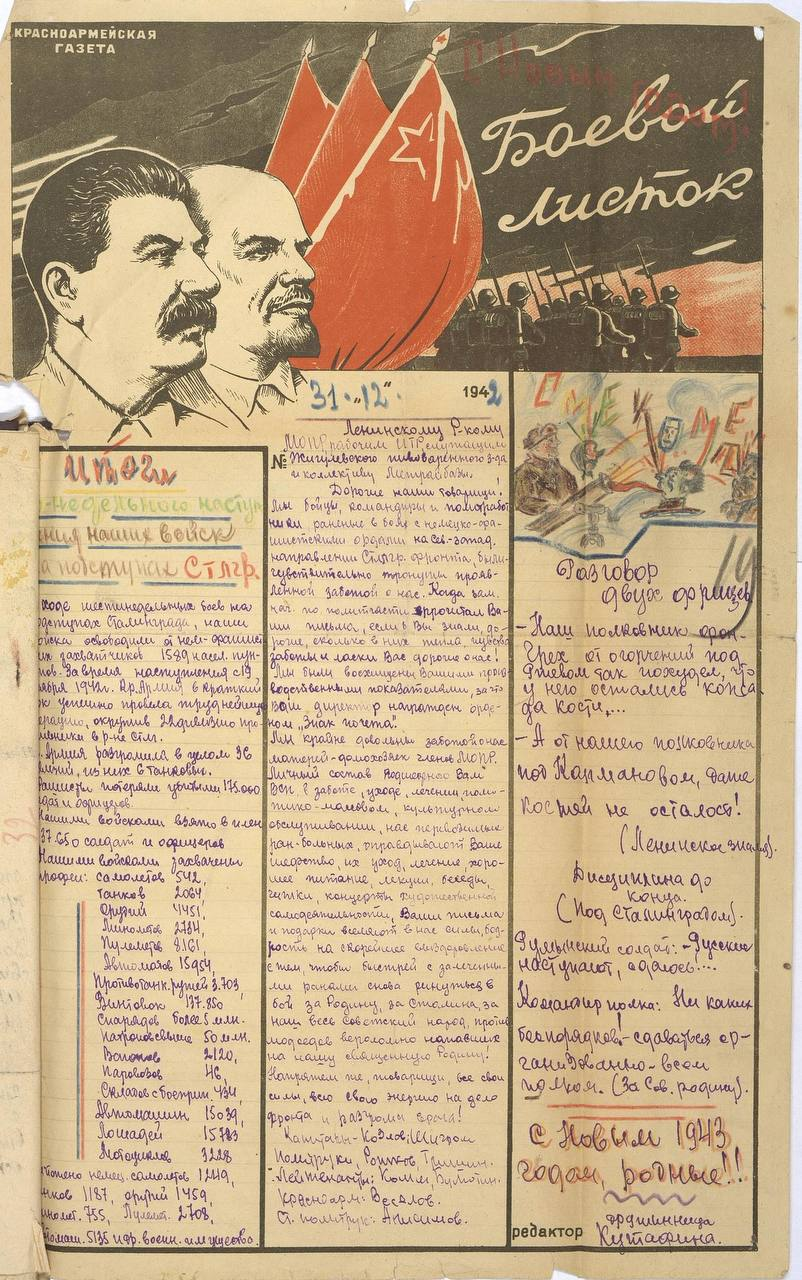 КРАСНОАРМЕЙСКАЯ
ГАЗЕТА
С Новым годом
Боевой
листок
31 "12" 1942
Итоги
-недельного наступ
ения наших войск
а подступах Стлгр.
ходе шестинедельных боев на
одступах Сталинграда, наши
ойска освободили от нем-фашист
их захватчиков 1589 насел. пун-
тов. За время наступления с 19
ября 1942г. Кр. Армия в краткий
ок успешно провела труднейшую
ерацию, окружив 22 дивизию про-
тивника в р-не Стл.
Армия разгромила в целом 36
визий, из них 6 танковых.
ашисты потеряли убитыми 175.000
дат и офицеров.
Нашими войсками взято в плен
37.650 солдат и офицеров
Нашими войсками захвачены
трофеи: самолетов 542,
танков 2064,
Орудий 4451,
Минометов 2734,
Пулеметов 8161,
Автоматов 15954,
Противотанк. ружей 3.703,
Винтовок 137.850
Снарядов более 5 млн.
Патронов свыше 50 млн.
Вагонов 2120,
Паровозов 46,
Складов с боеприп. 434,
Автомашин 15039,
Лошадей 15783
Мотоциклов 3228
тожено немец. самолетов 1249,
нков 1187, орудий 1459,
иномет. 755, Пулемет. 2708,
томаш. 5135 и др. военн. имущество.
Ленинскому Р-кому
МОПР рабочим ИТР служащим
№ Жигулевского пивоваренного з-да
и коллективу
Дорогие наши товарищи!
Мы бойцы, командиры и политработ
ники, раненые в боях с немецко-фа-
шистскими ордами на сев-запад.
направлении Стлгр. фронта, были
чувствительно тронуты прояв-
ленной заботой о нас. Когда зам.
нач. по политчасти прочитал Ва-
ши письма, если б Вы знали, до-
рогие, сколько в них тепла, чувства
заботы и ласки Вас дорогие о нас!
Мы были восхищены Вашими произ
водственными показателями, за что
Ваш директор награжден орде-
ном "Знак почета".
Мы крайне довольны заботой о нас
матерей-домохозяек членов МОПР.
Личный состав подшефного Вам
в заботе, уходе, лечении поли-
тико-массовом, культурном
обслуживании, нас
ран-больных, оправдывают Ваше
шефство, их уход, лечение, хоро-
шее питание, лекции, беседы,
читки, концерты художественной
самодеятельности, Ваши письма
и подарки вселяют в нас силы, бод-
рость на скорейшее выздоровление
с тем, чтобы быстрей с залеченны-
ми ранами снова ринуться в
бой за Родину, за Сталина, за
наш весь Советский народ, против
людоедов вероломно напавших
на нашу священную Родину!
Напряжем же, товарищи, все свои
силы, всю свою энергию на дело
фронта и разгрома врага!
Капитаны-Козлов, Шигром
Политруки, Рошков, Гришин.
Лейтенанты: Комм, Бумотин.
Красноарм: Веселов.
Ст. политрук: Анисимов.
СМЕК
Разговор
двух фрицев
- Наш полковник фон-
Грех от огорчений под
Ржевом так похудел, что
у него остались кожа
да кости,...
- А от нашего полковника
под Кармановом, даже
костей не осталось!
(Ленинское знамя).
Дисциплина до
конца.
(Под Сталинградом).
Румынский солдат: - Русские
наступают, сдалось!...
Командир полка: Ни каких
беспорядков! - сдаваться ор-
ганизованно - всем
полком. (За Сов. родину).
С Новым 1943
годом, родные!!
редактор дружинница
Кутафина.